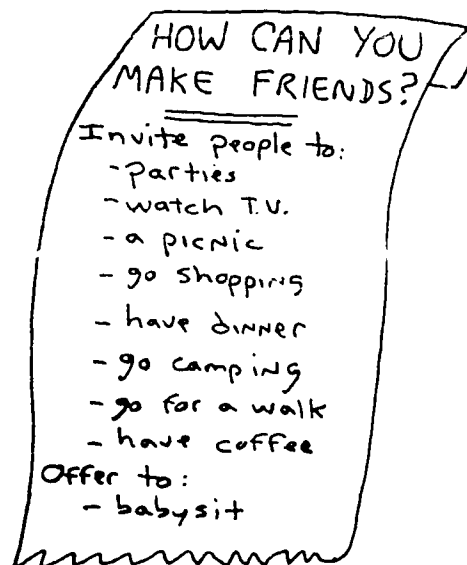 HOW CAN YOU
MAKE FRIENDS?
Invite people to:
- parties
- watch T.V.
- a picnic
- go shopping
- have dinner
- go camping
- go for a walk
- have coffee
Offer to:
- babysit